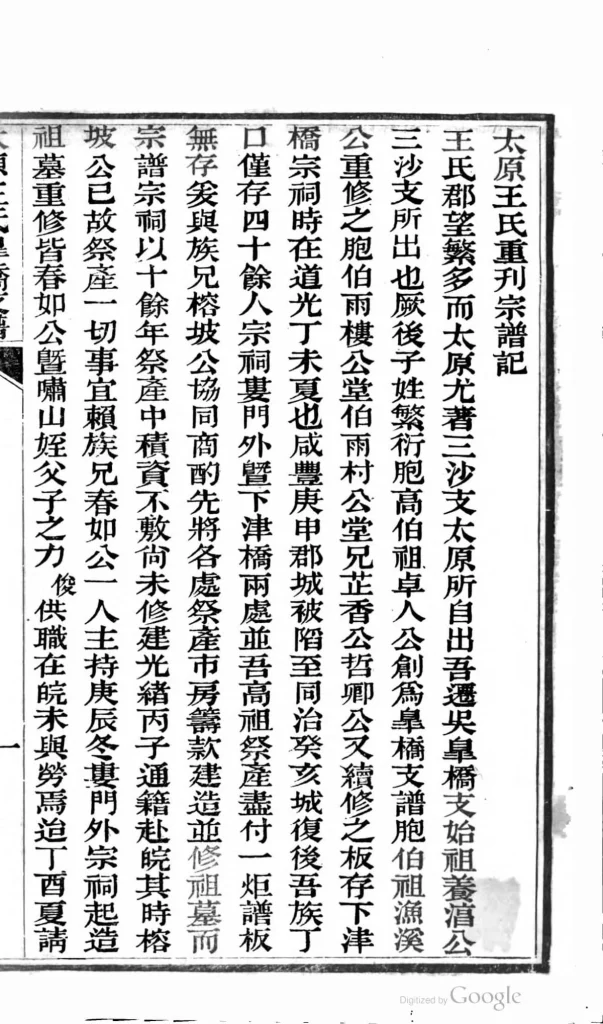 太原王氏重刊宗譜記
王氏郡望繁多而太原尤著三沙支太原所自出吾遷吳臯橋支始祖養湻公
三沙支所出也厥後子姓繁衍胞高伯祖卓人公創爲臯橋支譜胞伯祖漁溪
公重修之胞伯雨樓公堂伯雨村公堂兄芷香公哲卿公又續修之板存下津
橋宗祠時在道光丁未夏也咸豐庚申郡城被陷至同治癸亥城復後吾族丁
口僅存四十餘人宗祠婁門外曁下津橋兩處並吾高祖祭產盡付一炬譜板
無存爰與族兄榕坡公協同商酌先將各處祭產市房籌款建造並修祖墓而
宗譜宗祠以十餘年祭產中積資不敷尙未修建光緒丙子通籍赴皖其時榕
坡公已故祭產一切事宜賴族兄春如公一人主持庚辰冬婁門外宗祠起造
祖墓重修皆春如公曁嘯山姪父子之力俊供職在皖未與勞焉迨丁酉夏請
太原王氏臯橋支
一
Digitized by Google